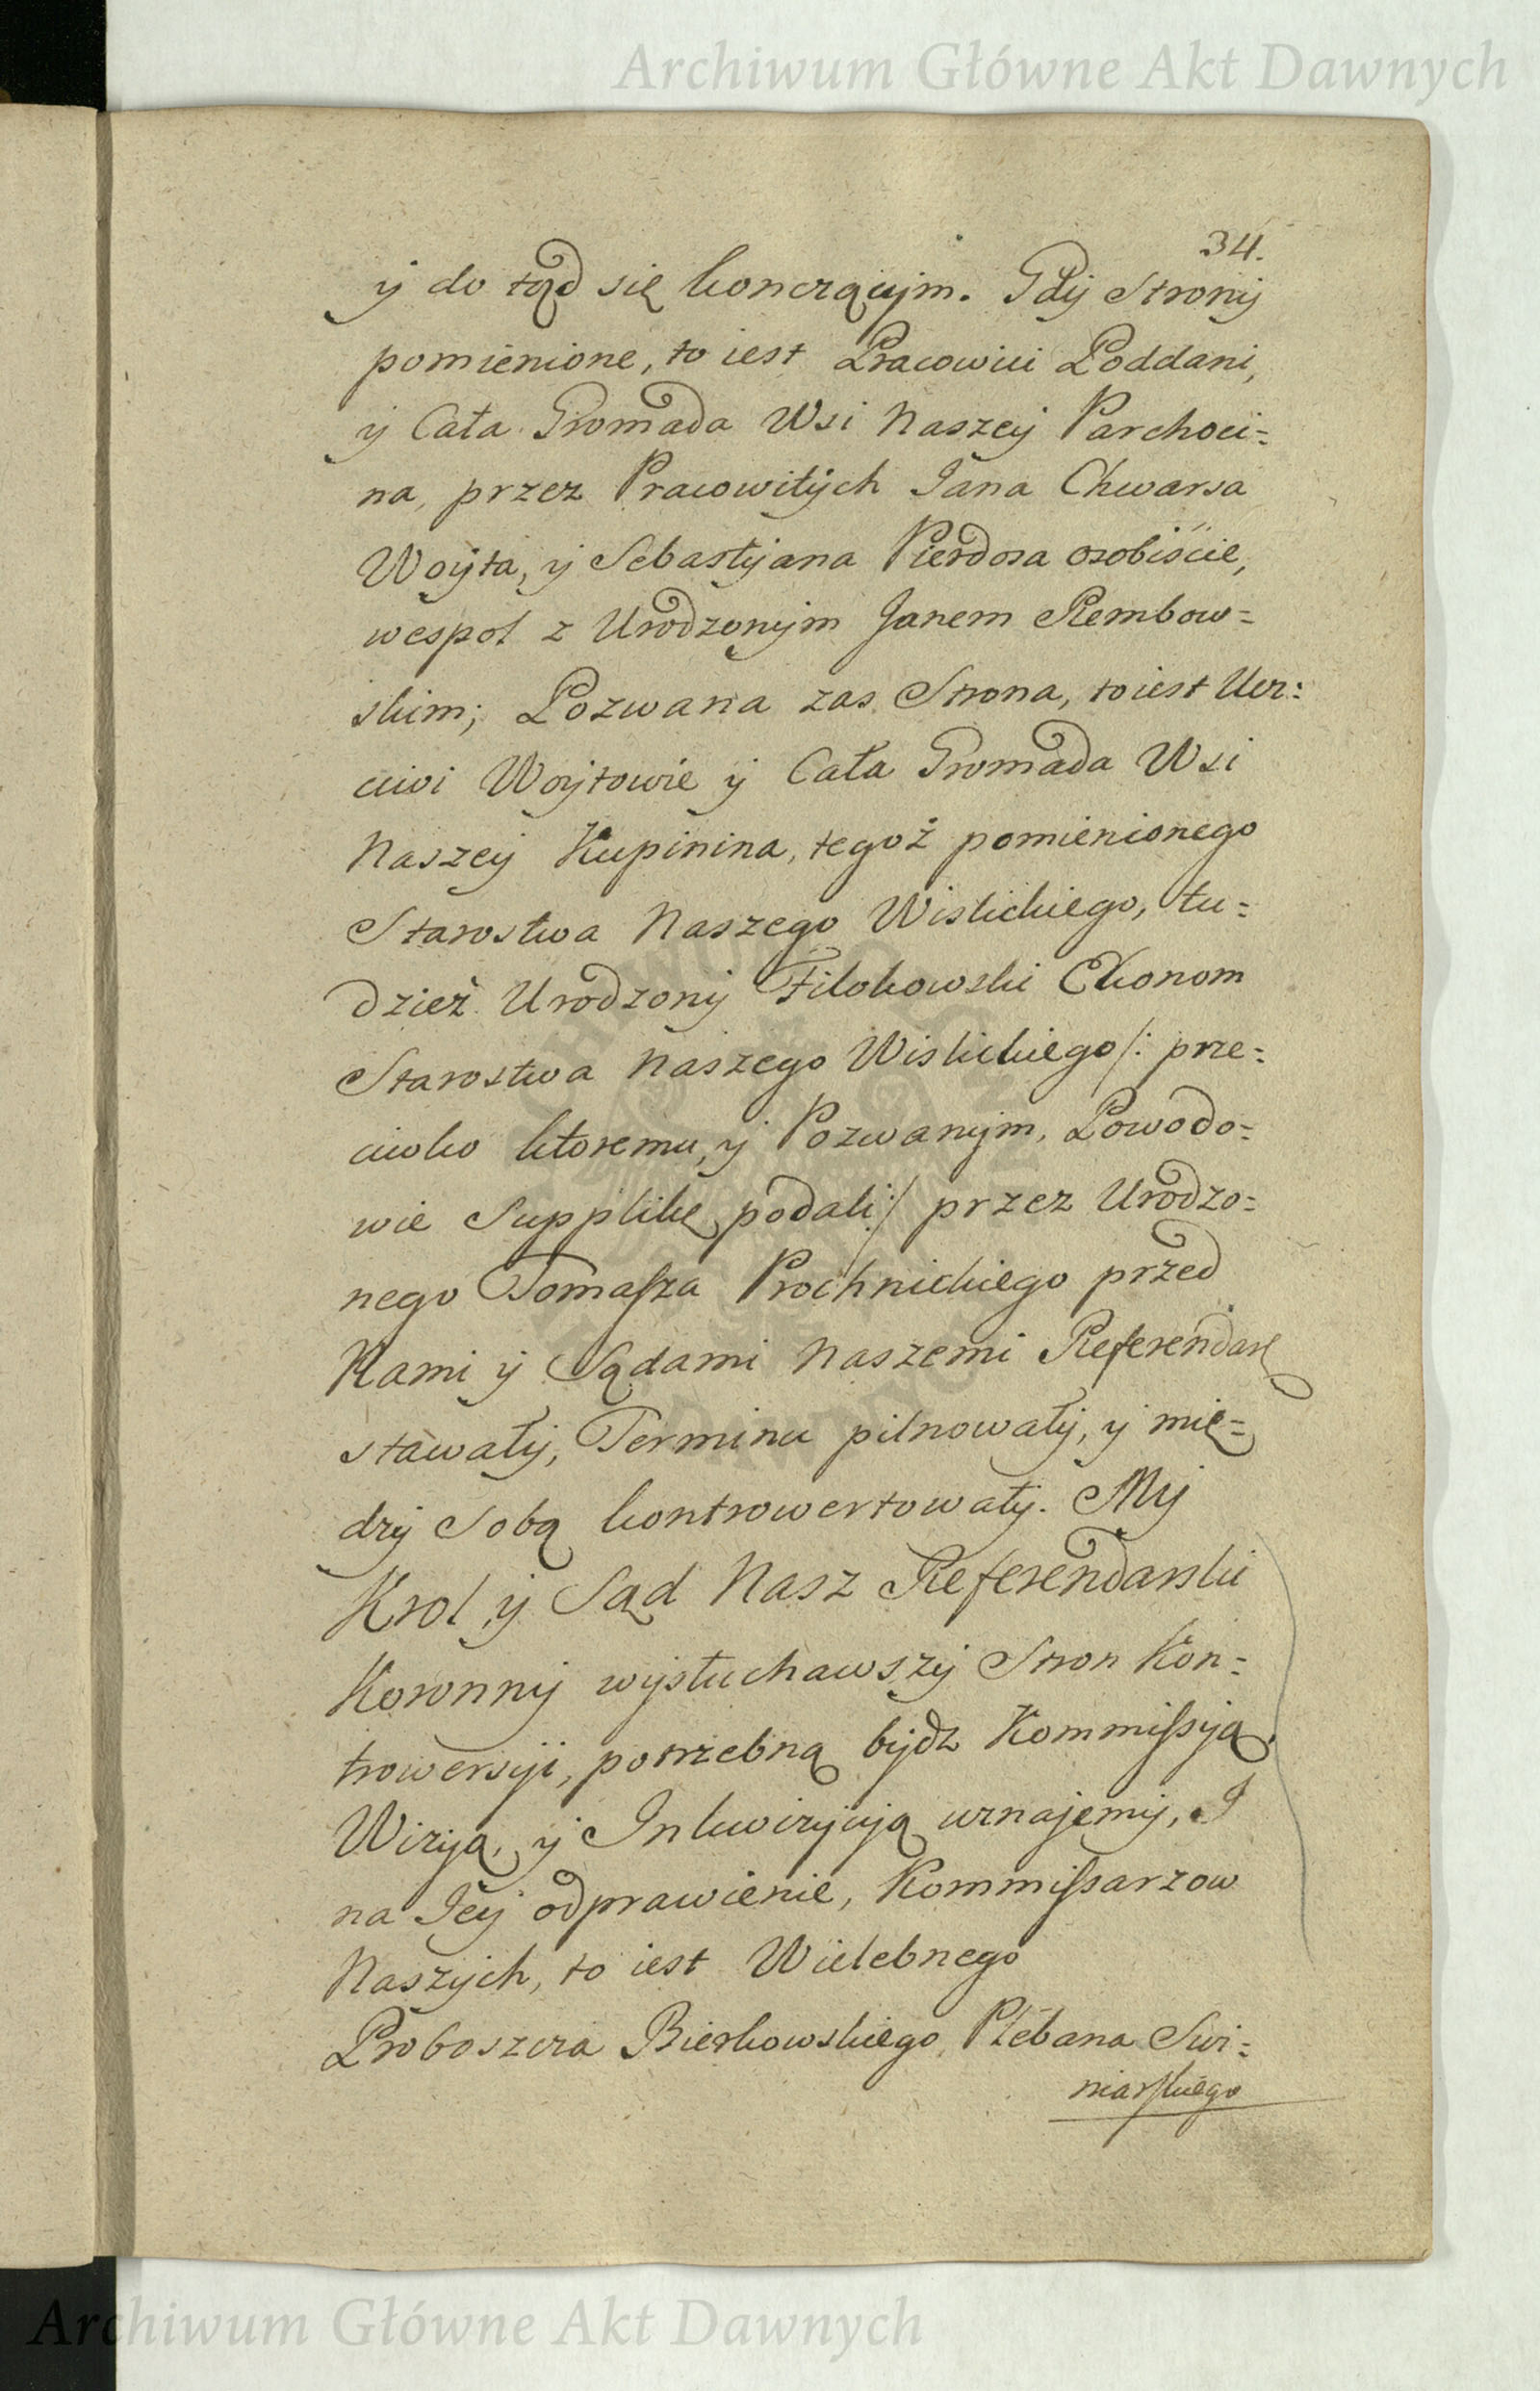 Archiwum Główne Akt Dawnych
34.
y do tąd się konczącym. Gdy Strony
pomienione, to iest Pracowici Poddani,
y Cała Gromada Wsi Naszey Parchoci=
na, przez Pracowitych Jana Chwarsa
Woyta, y Sebastyana Pierdosa osobiście,
wespoł z Urodzonym Janem Rembow=
skim; Pozwana zas Strona, to iest Ucz=
ciwi Woytowie y Cała Gromada Wsi
Naszey Kupinina, tegoż pomienionego
Starostwa Naszego Wislickiego, tu=
dzież Urodzony Filokowski Ekonom
Starostwa Naszego Wislickiego /: prze=
ciwko ktoremu, y Pozwanym, Powodo=
wie Supplikę podali :/ przez Urodzo=
nego Tomaszа Prochnickiego przed
Nami y Sądami Naszemi Referendar:
stawały, Terminu pilnowały, y mię=
dzy Sobą kontrowertowały. My
Krol y Sąd Nasz Referendarski
Koronny wysłuchawszy Stron Kon=
trowersyi, potrzebną bydz Kommissyą
Wizyą, y Inkwizycyą uznajemy, I
na Jey odprawienie, Kommissarzow
Naszych, to iest Wielebnego
Proboszcza Bierkowskiego, Plebana Swi=
niarskiego
Archiwum Główne Akt Dawnych